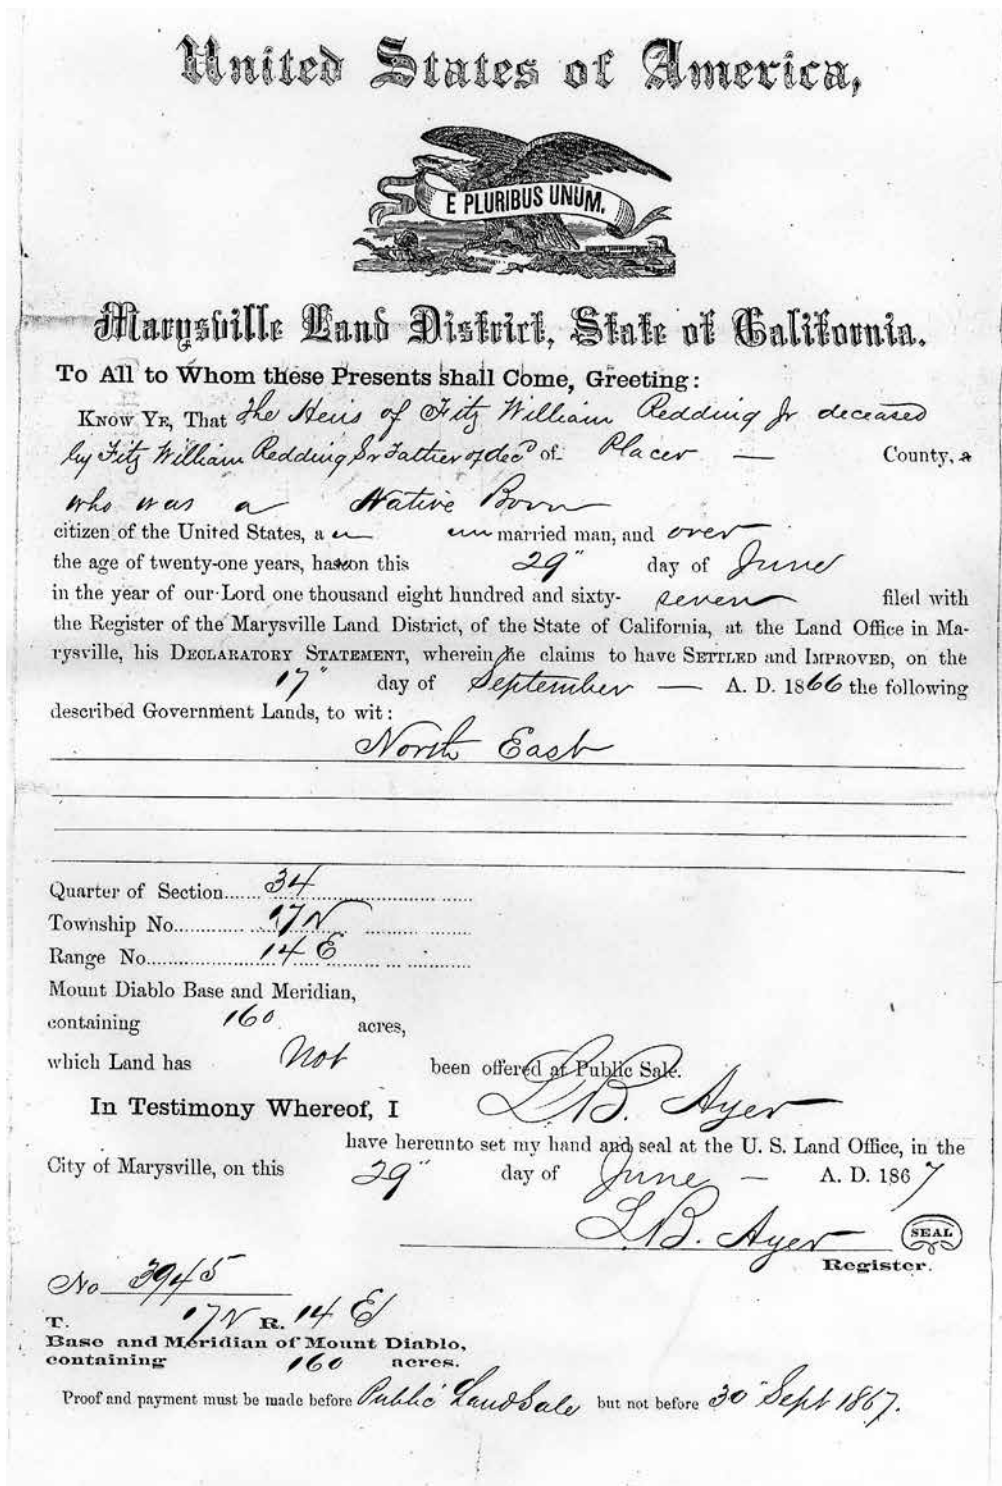 United States of America,
E PLURIBUS UNUM.
Marysville Land District, State of California.
To All to Whom these Presents shall Come, Greeting:
KNOW YE, That The Heirs of Fitz William Redding Jr deceased
by Fitz William Redding Sr Father of decd of Placer — County, a
who was a Native Born
citizen of the United States, a un married man, and over
the age of twenty-one years, has on this 29" day of June
in the year of our Lord one thousand eight hundred and sixty-seven filed with
the Register of the Marysville Land District, of the State of California, at the Land Office in Ma-
rysville, his DECLARATORY STATEMENT, wherein he claims to have SETTLED and IMPROVED, on the
17" day of September — A. D. 1866 the following
described Government Lands, to wit:
North East
Quarter of Section...... 34
Township No............ 17 N
Range No............ 14 E
Mount Diablo Base and Meridian,
containing 160 acres,
which Land has Not been offered at Public Sale.
In Testimony Whereof, I L. B. Ayer
have hereunto set my hand and seal at the U. S. Land Office, in the
City of Marysville, on this 29" day of June — A. D. 1867
L. B. Ayer SEAL
Register.
No 3945
T. 17 N R. 14 E
Base and Meridian of Mount Diablo,
containing 160 acres.
Proof and payment must be made before Public Land Sale but not before 30" Sept 1867.